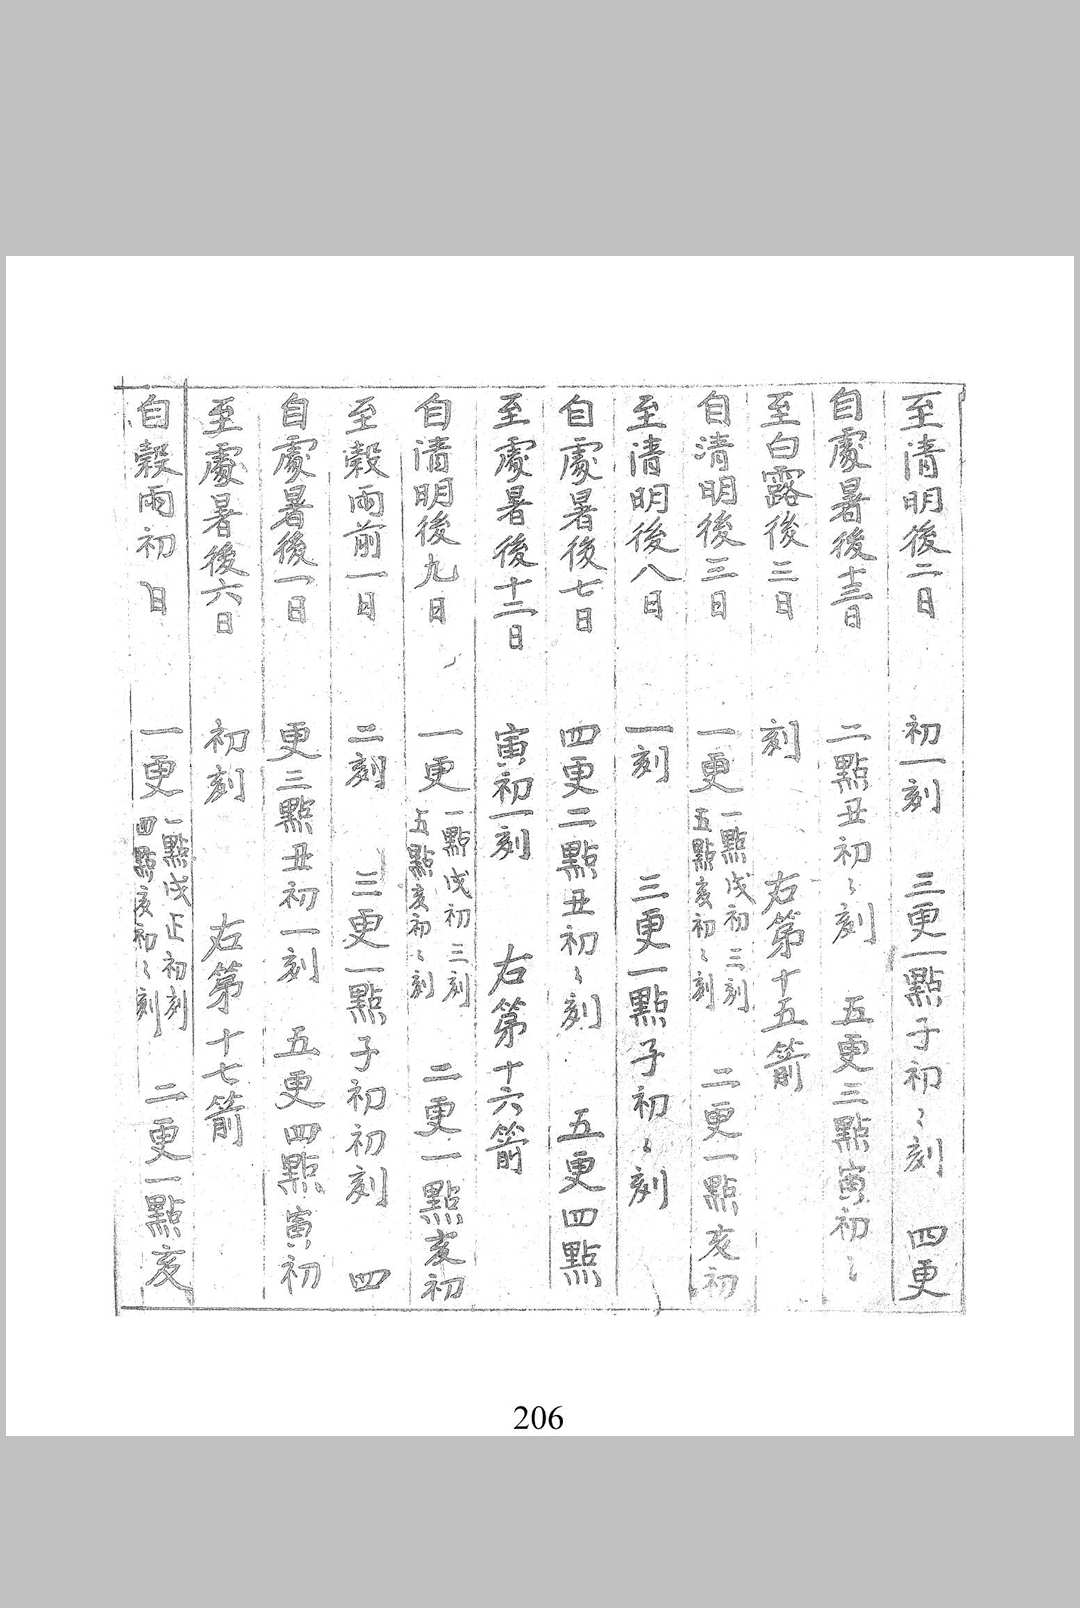 至清明後二日　初一刻　三更一點子初〻刻　四更
自處暑後十三日　二點丑初〻刻　五更三點寅初〻
至白露後三日　刻　右第十五箭
自清明後三日　一更一點戌初三刻五點亥初〻刻　二更一點亥初
至清明後八日　一刻　三更一點子初〻刻
自處暑後七日　四更二點丑初〻刻　五更四點
至處暑後十二日　寅初一刻　右第十六箭
自清明後九日　一更一點戌初三刻五點亥初〻刻　二更一點亥初
至穀雨前一日　二刻　三更一點子初初刻　四
自處暑後一日　更三點丑初一刻　五更四點寅初
至處暑後六日　初刻　右第十七箭
自穀雨初日　一更一點戌正初刻四點亥初〻刻　二更一點亥
206